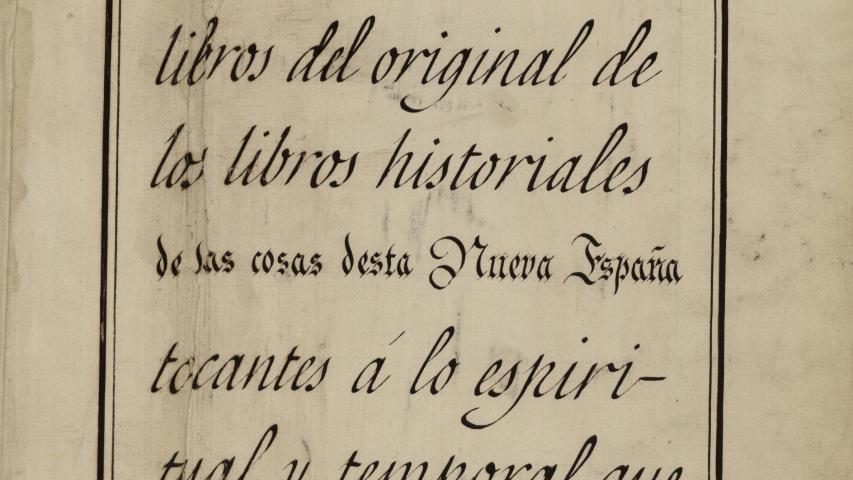 libros del original de
los libros historiales
de las cosas desta Nueva España
tocantes á lo espiri-
tual y temporal que